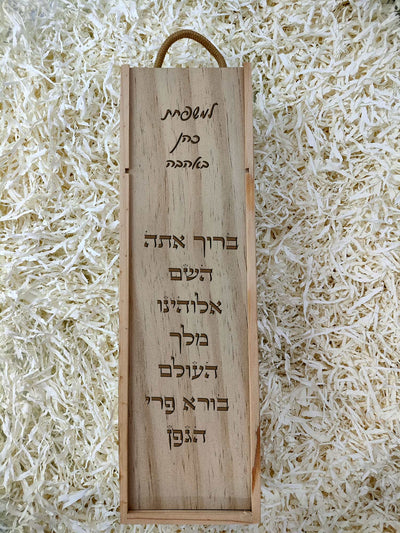 למשפחת
כהן
באהבה
ברוך אתה
השם
אלוהינו
מלך
העולם
בורא פרי
הגפן